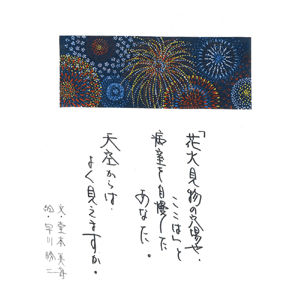 「花火見物の穴場や、
ここは」と
病室を自慢した
あなた。
天空からは、
よく見えますか。
文・堂本美
絵・早川